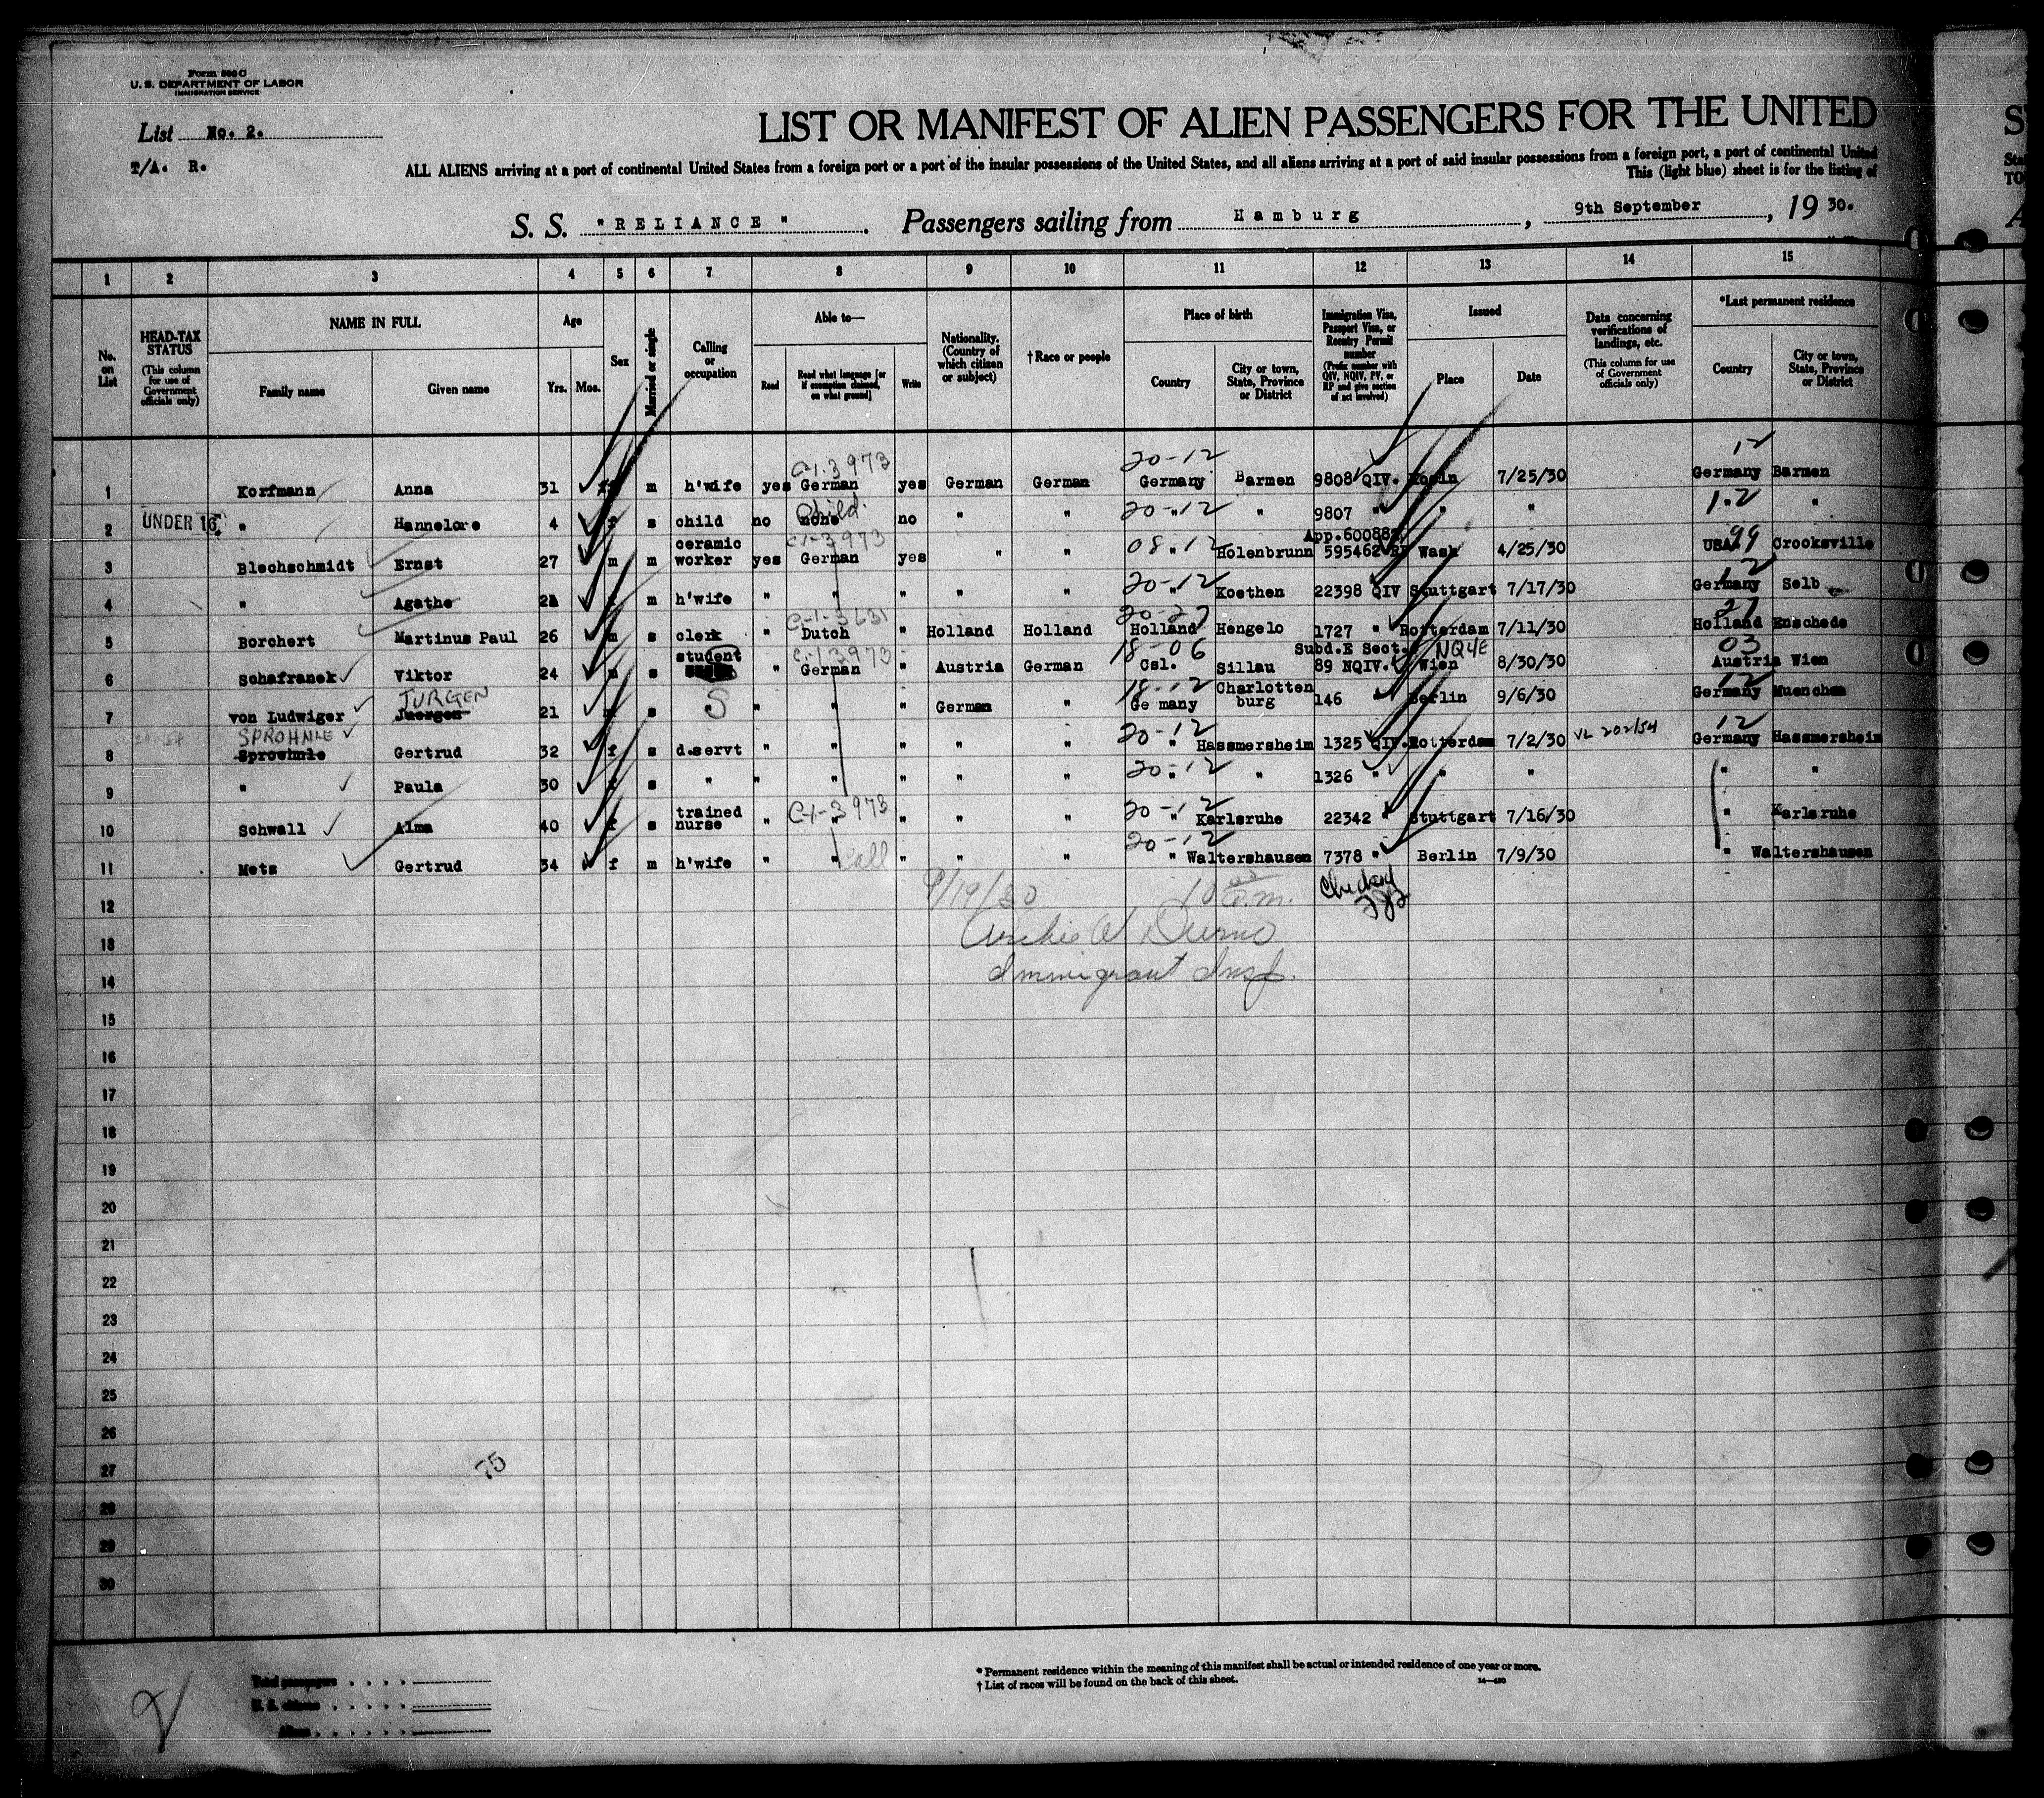 Form 500 C
U. S. DEPARTMENT OF LABOR
IMMIGRATION SERVICE
List No. 2.
T/A. R.
LIST OR MANIFEST OF ALIEN PASSENGERS FOR THE UNITED
ALL ALIENS arriving at a port of continental United States from a foreign port or a port of the insular possessions of the United States, and all aliens arriving at a port of said insular possessions from a foreign port, a port of continental United
This (light blue) sheet is for the listing of
S. S. "RELIANCE". Passengers sailing from Hamburg, 9th September, 19 30.
1 2 3 4 5 6 7 8 9 10 11 12 13 14 15
No. on List
HEAD-TAX STATUS (This column for use of Government officials only)
NAME IN FULL Family name Given name
Age Yrs. Mos.
Sex
Married or single
Calling or occupation
Able to— Read Read what language [or if exemption claimed, on what ground] Write
Nationality. (Country of which citizen or subject)
†Race or people
Place of birth Country City or town, State, Province or District
Immigration Visa, Passport Visa, or Reentry Permit number (Prefix number with QIV, NQIV, PV, or RP and give section of act involved)
Issued Place Date
Data concerning verifications of landings, etc. (This column for use of Government officials only)
*Last permanent residence Country City or town, State, Province or District
C-1-3973 20-12 12
1 Korfmann Anna 31 f m h'wife yes German yes German German Germany Barmen 9808 QIV. 7/25/30 Germany Barmen
Child 20-12 12
2 UNDER 16. " Hannelore 4 f s child no none no " " " " 9807 " " " " "
ceramic C-1-3973 08-12 App.600882 99
3 Blechschmidt Ernst 27 m m worker yes German yes " " " Holenbrunn 595462 RP Wash 4/25/30 USA. Crooksville
20-12 12
4 " Agathe m h'wife " " " " " " Koethen 22398 QIV Stuttgart 7/17/30 Germany Selb
C-1-3631 20-27 27
5 Borchert Martinus Paul 26 m s clerk " Dutch " Holland Holland Holland Hengelo 1727 " Rotterdam 7/11/30 Holland Enschede
student C-1-3973 18-06 Subd.E Sect. NQ4E 03
6 Schafranek Viktor 24 m s " German " Austria German Csl. Sillau 89 NQIV. Wien 8/30/30 Austria Wien
JURGEN 18-12 Charlotten 12
7 von Ludwiger Juergen 21 s S " " " German " Ge many burg 146 " Berlin 9/6/30 Germany Muenchen
SPROHNLE 20-12 12
8 Gertrud 32 f s d.servt " " " " " " Hassmersheim 1325 QIV. Rotterdam 7/2/30 VL 202/54 Germany Hassmersheim
20-12
9 " Paula 30 f s " " " " " " " " 1326 " " " " "
trained C-1-3973 20-12
10 Schwall Alma 40 f s nurse " " " " " " Karlsruhe 22342 " Stuttgart 7/16/30 " Karlsruhe
20-12
11 Metz Gertrud 34 f m h'wife " " " " " " Waltershausen 7378 " Berlin 7/9/30 " Waltershausen
12 9/19/30 10 a.m. Checked
13
14 Immigrant Insp.
15
16
17
18
19
20
21
22
23
24
25
26
27 75
28
29
30
Total passengers
U. S. citizens
Aliens
* Permanent residence within the meaning of this manifest shall be actual or intended residence of one year or more.
† List of races will be found on the back of this sheet.
14—480